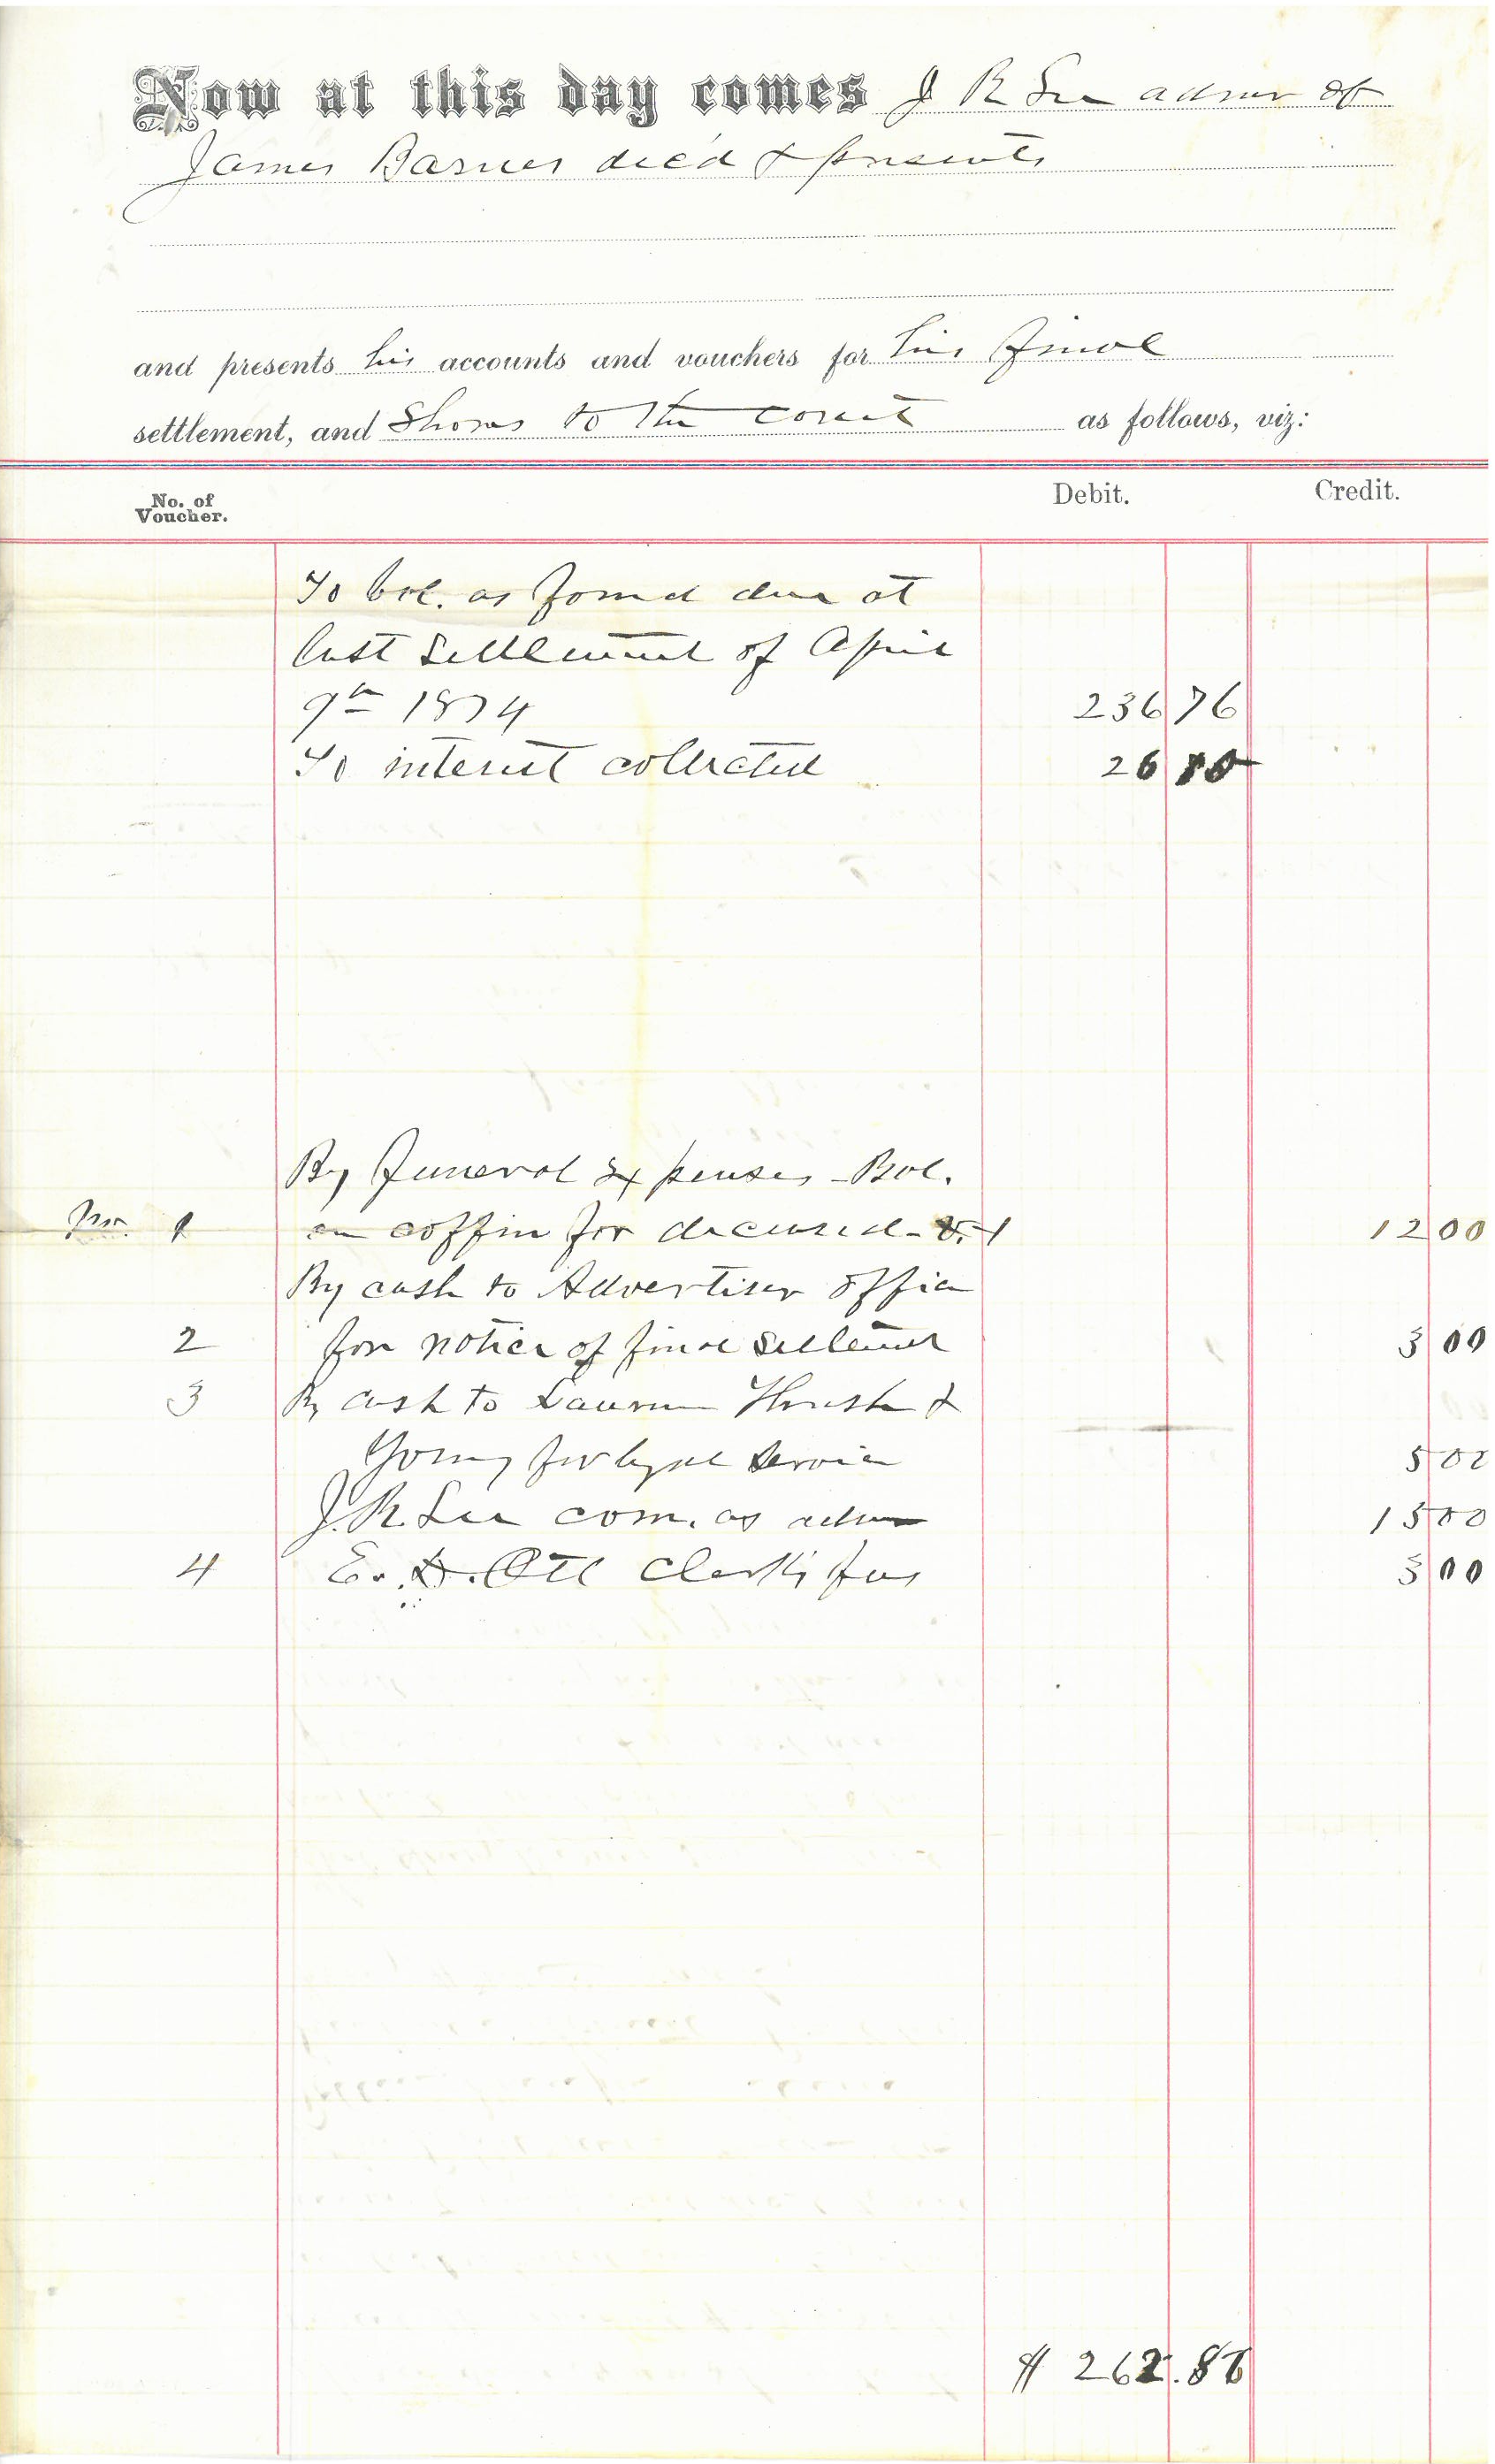 Now at this day comes J R Lee admr of
James Barnes dec'd & presents
and presents his accounts and vouchers for his final
settlement, and Shows to the court as follows, viz:
No. of Voucher. Debit. Credit.
To bal. as found due at
last settlement of April
9th 1874 236 76
To interest collected 26 10
By Funeral Expenses - Bal.
No. 1 on coffin for deceased - 12 00
By cash to Advertiser office
2 for notice of final settlement 3 00
3 By cash to Thrash &
Young for legal service 5 00
J. R. Lee com. as admr 15 00
4 E. D. Ott Clerk's fees 3 00
$ 262.86